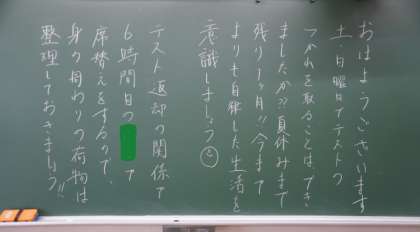 おはようございます
土・日曜日でテストの
つかれを取ることはでき
ましたか??夏休みまで
残り1ヶ月!!今まで
よりも自律した生活を
意識しましょう
テスト返却の関係で
6時間目の で
席替えをするので、
身の周わりの荷物は
整理しておきましょう!!